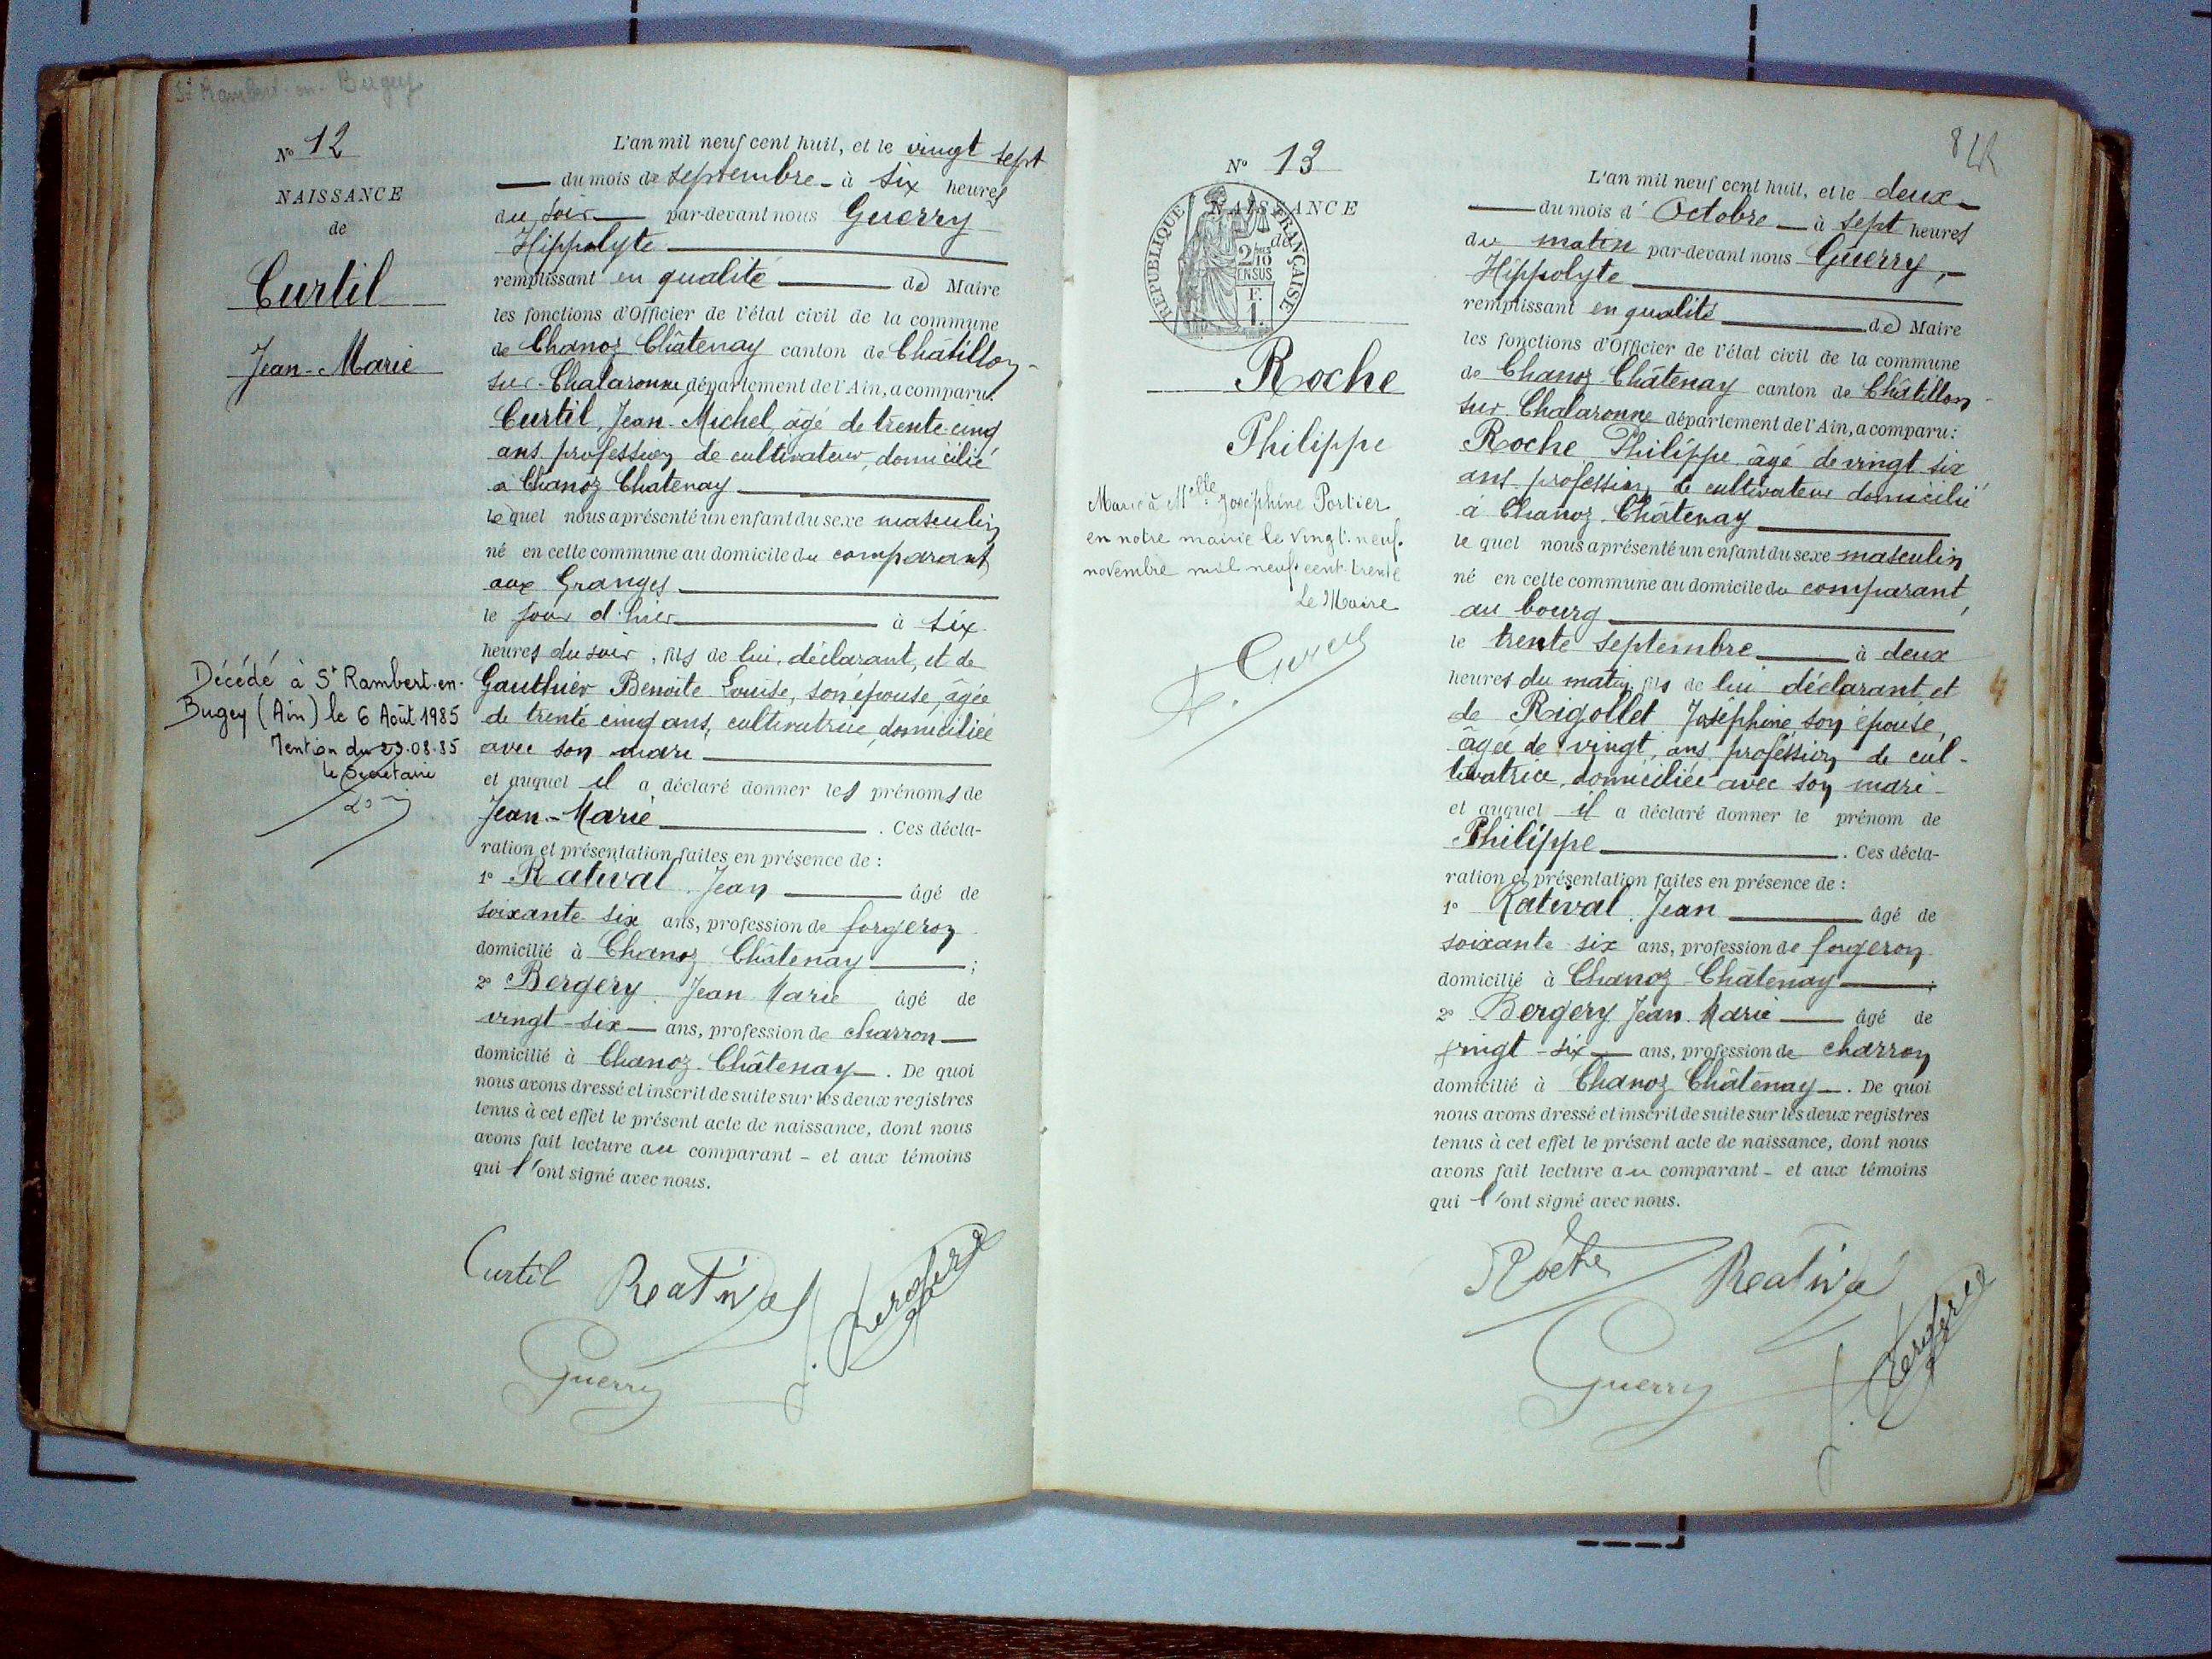 St Rambert-en-Bugey
No 12
NAISSANCE
de
Curtil
Jean-Marie
Décédé à St Rambert-en-
Bugey (Ain) le 6 Août 1985
Mention du 23.08.85
le Secrétaire
L'an mil neuf cent huit, et le vingt sept
du mois de septembre - à six heures
du soir par-devant nous Guerry
Hippolyte
remplissant en qualité de Maire
les fonctions d'Officier de l'état civil de la commune
de Chanoz-Châtenay canton de Châtillon-
sur-Chalaronne, département de l'Ain, a comparu:
Curtil, Jean-Michel, âgé de trente-cinq
ans profession de cultivateur, domicilié
à Chanoz Chatenay
lequel nous a présenté un enfant du sexe masculin
né en cette commune au domicile du comparant
aux Granges
le jour d'hier à six
heures du soir, fils de lui, déclarant, et de
Gauthier Benoite Louise, son épouse, âgée
de trente cinq ans, cultivatrice, domiciliée
avec son mari
et auquel il a déclaré donner les prénoms de
Jean-Marie. Ces décla-
ration et présentation faites en présence de :
1º Ratival Jean âgé de
soixante six ans, profession de forgeron
domicilié à Chanoz Châtenay ;
2º Bergery Jean Marie âgé de
vingt-six ans, profession de charron
domicilié à Chanoz-Châtenay. De quoi
nous avons dressé et inscrit de suite sur les deux registres
tenus à cet effet le présent acte de naissance, dont nous
avons fait lecture au comparant - et aux témoins
qui l'ont signé avec nous.
Curtil Reatival J. Bergery
Guerry
No 13
NAISSANCE
de
REPUBLIQUE FRANÇAISE
2/10
EN SUS
F.
1.
Roche
Philippe
Marié à Melle Joséphine Portier
en notre mairie le vingt-neuf
novembre mil neuf cent trente
Le Maire
L'an mil neuf cent huit, et le deux
du mois d'Octobre à sept heures
du matin par-devant nous Guerry,
Hippolyte
remplissant en qualité de Maire
les fonctions d'Officier de l'état civil de la commune
de Chanoz-Châtenay canton de Châtillon-
sur Chalaronne département de l'Ain, a comparu:
Roche Philippe âgé de vingt six
ans profession de cultivateur domicilié
à Chanoz-Châtenay
lequel nous a présenté un enfant du sexe masculin
né en cette commune au domicile du comparant,
au bourg
le trente septembre à deux
heures du matin, fils de lui déclarant, et
de Ragollet Joséphine son épouse,
âgée de vingt ans profession de cul-
tivatrice, domiciliée avec son mari -
et auquel il a déclaré donner le prénom de
Philippe. Ces décla-
ration et présentation faites en présence de :
1º Ratival Jean âgé de
soixante six ans, profession de forgeron
domicilié à Chanoz-Châtenay ;
2º Bergery Jean Marie âgé de
vingt-six ans, profession de charron
domicilié à Chanoz Châtenay. De quoi
nous avons dressé et inscrit de suite sur les deux registres
tenus à cet effet le présent acte de naissance, dont nous
avons fait lecture au comparant - et aux témoins
qui l'ont signé avec nous.
Roche Reatival
Guerry J. Bergery